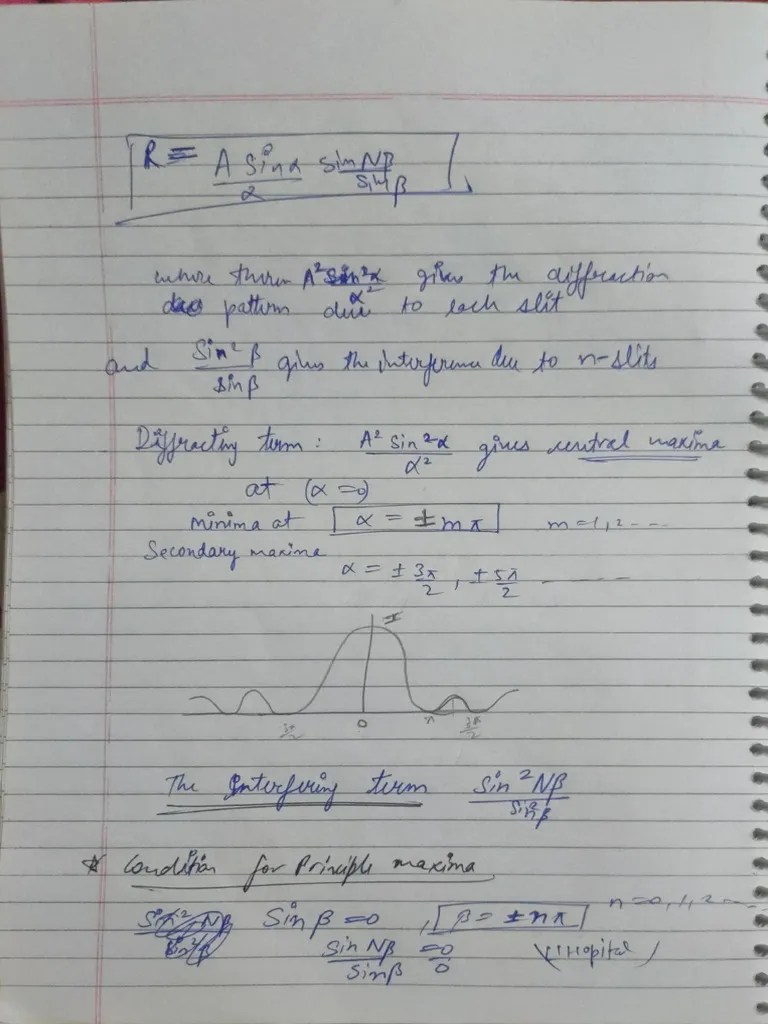 R = A Sinα/α sin Nβ/Sin β
where A² Sin²α/α² gives the diffraction
pattern due to each slit
and Sin² β/Sin β gives the interference due to n-slits
Diffracting term : A² Sin²α/α² gives central maxima
at (α = 0)
Minima at α = ± mπ m = 1, 2 - - -
Secondary maxima
α = ± 3π/2 , ± 5π/2 - - - -
I
3π/2 0 π 3π/2
The Interfering term Sin² Nβ/Sin²β
* Condition for Principle maxima
n = 0, 1, 2 - -
Sin β = 0 , β = ± nπ
Sin Nβ/Sin β = 0/0 (l'Hopital)